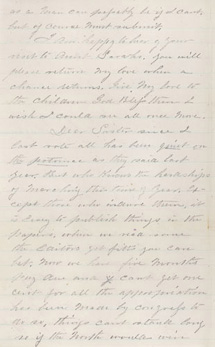 as a man can possibly be if I can't,
but of course must submit.
I am happy to hear of your
visit to Aunt Sarahs, you will
please return my love when a
chance returns. Give my love to
the children God bless them I
wish I could see all once more.
Dear Sister since I
last wrote all has been quiet on
the potomac as they said last
year, that who knows the hardships
of marching this time of year, ex-
cept those who endure them, it
is easy to publish things in the
papers, when we receive
the Sailors get fifty you can
bet, now we have five months
pay due and can't get one
cent for all the appropriation
has been made by congress to
us, things can't stand long
so if the North would